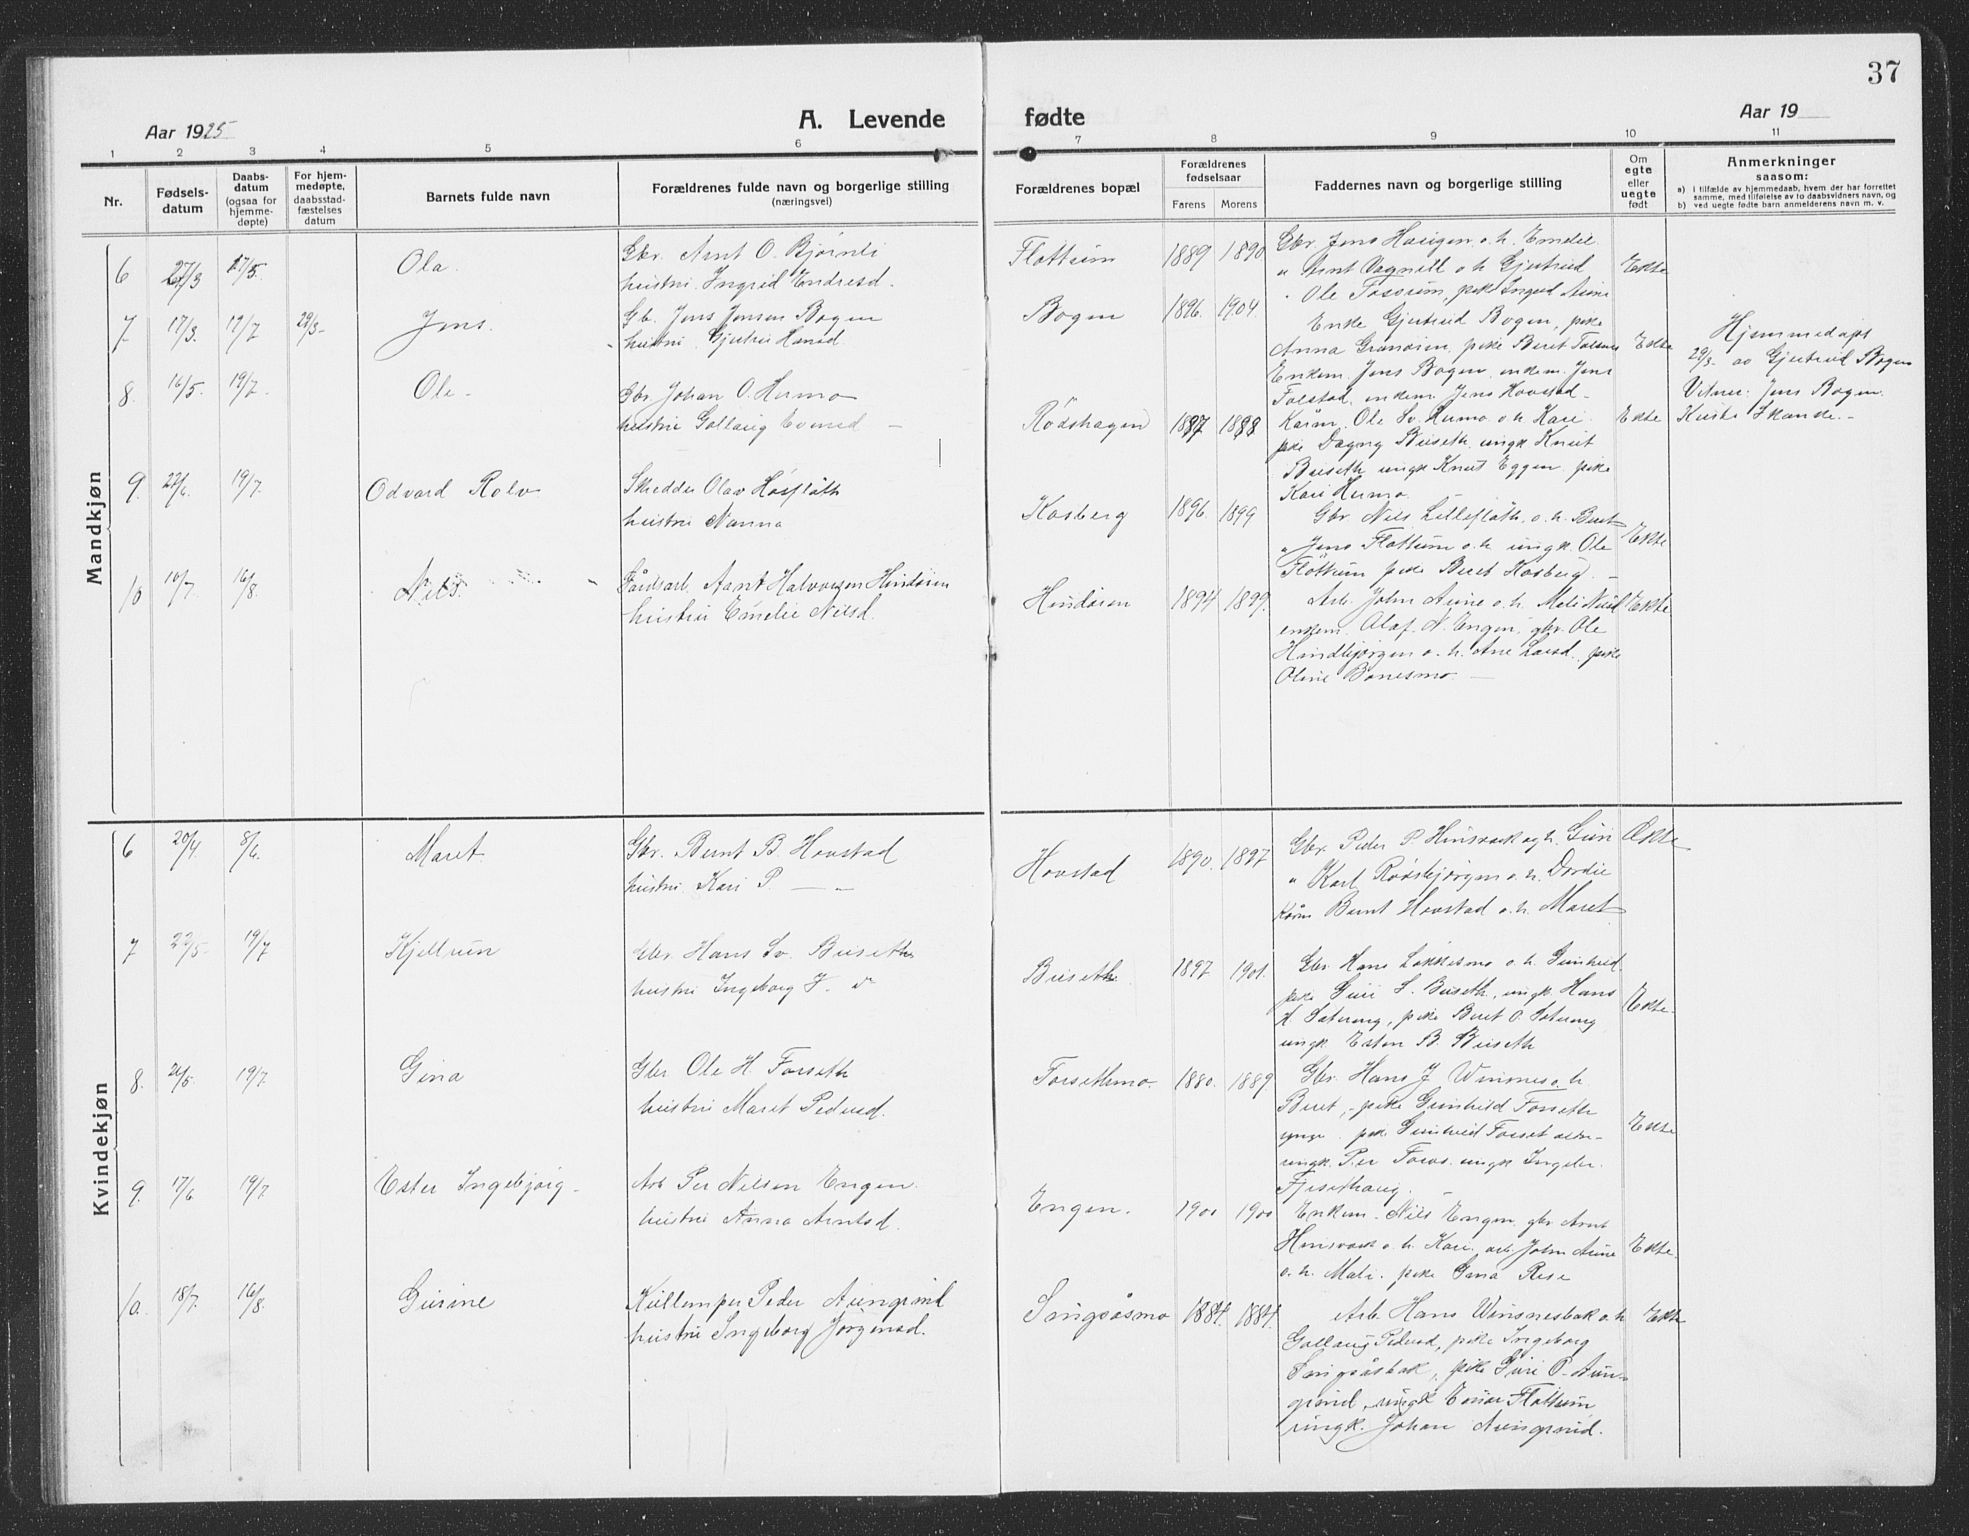 37
Aar 1925
A. Levende
fødte
Aar 19
1 2 3 4 5 6 7 8 9 10 11
Nr.
Fødsels-
datum
Daabs-
datum
(ogsaa for
hjemme-
døpte)
For hjem-
medøpte,
daabsstad-
fæstelses
datum
Barnets fulde navn
Forældrenes fulde navn og borgerlige stilling
(næringsvei)
Forældrenes bopæl
Forældrenes
fødselsaar
Farens Morens
Faddernes navn og borgerlige stilling
Om
egte
eller
uegte
født
Anmerkninger
saasom:
a) i tilfælde av hjemmedaab, hvem der har forrettet
samme, med tilføielse av to daabsvidners navn, og
b) ved uegte fødte barn anmelderens navn m. v.
Mandkjøn
6 27/3 17/5. Ola.
Gbr. Arnt O. Bjørnli
hustru Ingrid Endresd.
Flottum 1889 1890
Gbr. Jens Haugen o. h. Emelie
" Arnt Vagnill o. h. Gjertrud
" Ole Fossum, pike Ingrid Aune
Ekte
7 17/3. 19/7 29/3- Jens.
Gb. Jens Jensen Bogen
hustru Gjertru Hansd.
Bogen 1896. 1904
Enke Gjertrud Bogen, pike
Anna Granøien, pike Beret Folstad
Enkem. Jens Bogen, endem. Jens
Folstad, endem. Jens Hovstad-
Ekte
Hjemmedøpt
29/3- av Gjertrud Bogen
Vitner: Jens Bogen.
8. 16/5. 19/7. Ole.
Gbr. Johan O. Hermo
hustru Gollaug Evensd
Rødshagen 1887 1888
Kårm. Ole Sv. Hermo o. h. Kari
pike Dagny Buseth, ungk Knut
Buseth ungk Knut Eggen, pike
Kari Hermo.
Ekte
9. 22/6. 19/7. Odvard Rolv
Skredder Olav Håsflåth
hustru Nanna
Kosberg 1896. 1899
Gbr. Nils Lilleflåth. o. h. Beret
" Jens Flottum o. h. ungk. Ole
Flottum pike Beret Kosberg.
Ekte
10 10/7. 16/8. Nils.
Arnt Halvorsen Hindøien
hustru Emelie Nilsd.
Hindøien 1894 1899.
Arb. John Aune o. h. Mali Nilsd
enkem. Olaf N. Engen, gbr. Ole
Hindbjørgen o. h. Ane Larsd., pike
Oline Bonesmo.
Ekte
Kvindekjøn
6 20/4. 8/6. Maret.
Gbr. Bernt B. Hovstad
hustru Kari P. — " —
Hovstad 1890. 1897
Gbr. Peder P. Hinsvark og h. Guri
" Karl Rødsbjørgen o. h. Dordie
Kårm Bernt Hovstad o. h. Maret
Ekte
7 22/5- 19/7 Kjellrun
Gbr. Hans Sv. Buseth
hustru Ingeborg J. do
Buseth. 1897. 1901.
Gbr. Hans Løkkesmo o. h. Gunhild.
pike Guri S. Buseth, ungk. Hans
H. Sætrang, pike Beret O. Sætrang
ungk Esten B. Buseth
Ekte
8. 26/5. 19/7. Gina
Gbr Ole H. Forseth
hustru Maret Pedersd.
Forsethmo. 1880. 1889.
Gbr. Hans J. Winsnes o. h.
Beret, pike Gunhild Forseth
yngr. pike Gunhild Forset eldre-
ungk. Per Foros. ungk Ingebr.
Fjesethaug.
Ekte
9. 17/6 19/7 Ester Ingebjørg.
Arb Per Nilsen Engen.
hustru Anna Arntsd.
Engen. 1900 1900
Enkem. Nils Engen, gbr Arnt
Hinsvark o. h. Kari, arb. John Aune
o. h. Mali. pike Gina Rese
Ekte
10. 18/7. 16/8. Gurine
Kullemper Peder Aungrind
hustru Ingeborg Jørgensd.
Singsåsmo 1884. 1884.
Arb. Hans Winsnesbak o. h
Gollaug Pedersd, pike Ingeborg
Singsåsbak, pike Guri P. Aun-
grind, ungk Einar Flottum
ungk. Johan Aungrind.
Ekte